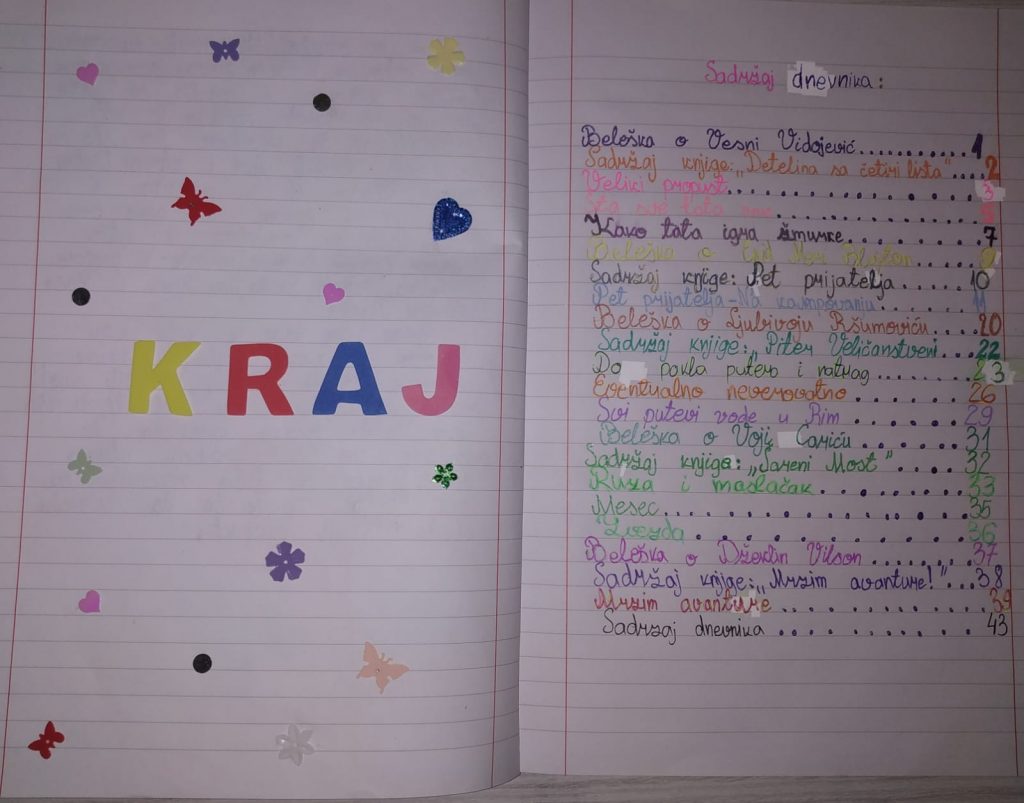 KRAJ
Sadržaj dnevnika:
Beleška o Vesni Vidojević........... 1
Sadržaj knjige: „Detelina sa četiri lista".... 2
Veliki propust................... 3
Šta sve tata ................ 5
Kako tata igra žmurke............ 7
Beleška o Blajton..... 9
Sadržaj knjige: Pet prijatelja..... 10
Pet prijatelja-Na kampovanju....... 11
Beleška o Ljubivoju Ršumoviću.... 20
Sadržaj knjige: „Piter Veličanstveni... 22
Do pakla putem i natrag.......... 23
Eventualno neverovatno.......... 26
Svi putevi vode u Rim.......... 29
Beleška o Voji Cariću.......... 31
Sadržaj knjige: „Šareni Most"....... 32
Ruža i maslačak............ 33
Mesec..................... 35
Zvezda................... 36
Beleška o Džeklin Vilson........ 37
Sadržaj knjige: „Mrzim avanture!"... 38
Mrzim avanture............ 39
Sadržaj dnevnika............ 43